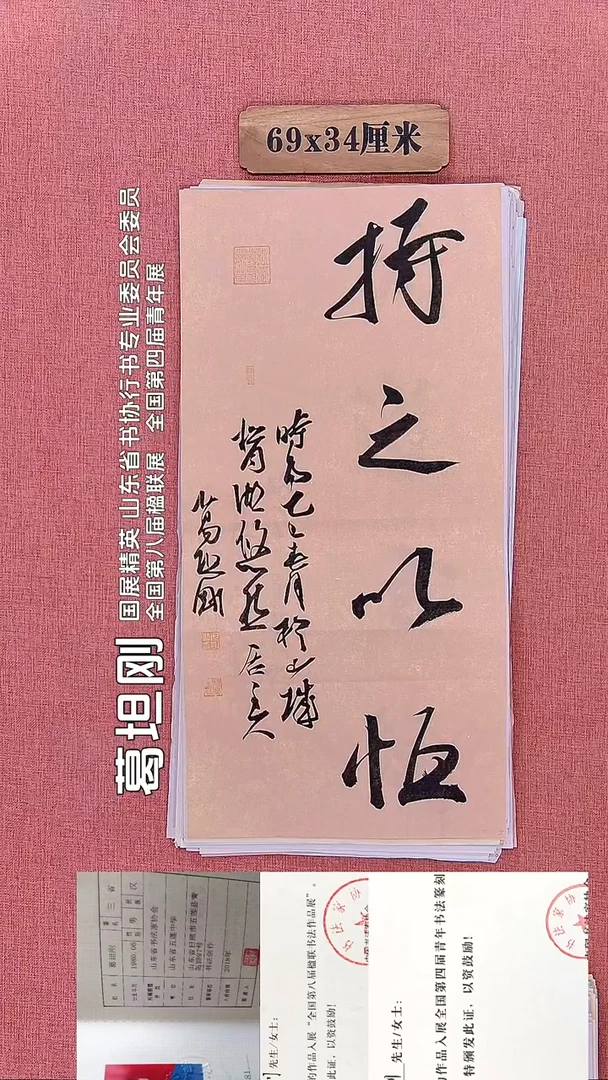 69x34厘米
持之以恒
时为乙巳春月于山城
悠然居主人
葛坦刚
葛坦刚
国展精英 山东省书协行书专业委员会委员
全国第八届楹联展 全国第四届青年展
葛坦刚
男
汉
山东省书法家协会
山东省五莲中学
书法创作
2018年
先生/女士：
的作品入展“全国第八届楹联书法作品展”。
此证，以资鼓励！
先生/女士：
作品入展全国第四届青年书法篆刻
特颁发此证，以资鼓励！